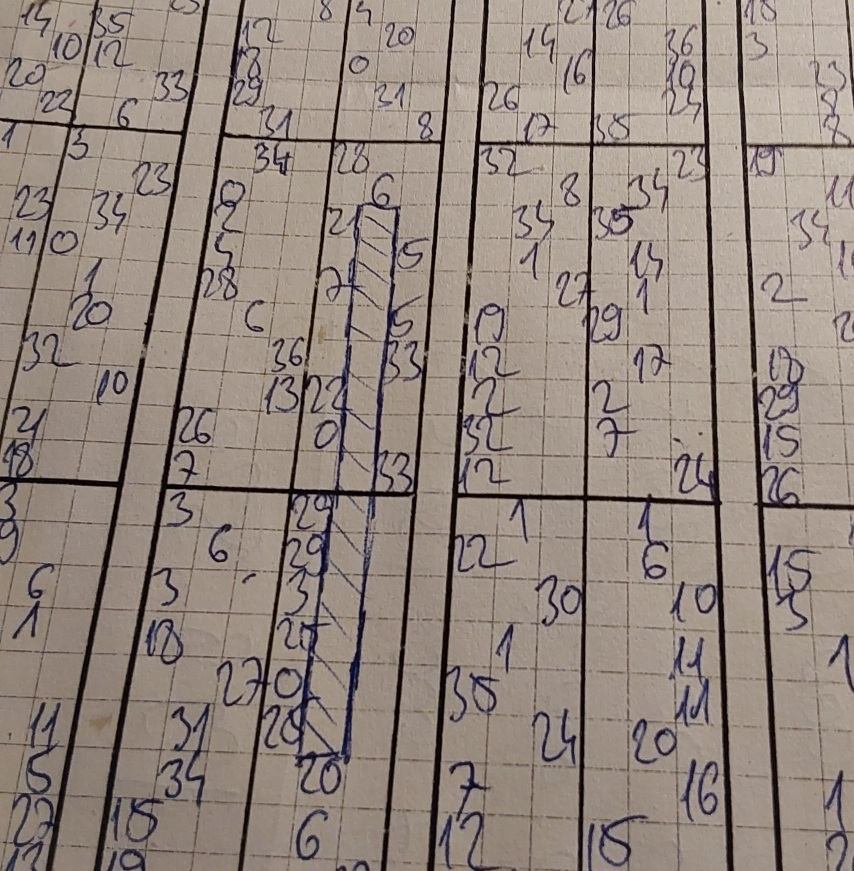 8 4
14 35 12 20 14 26 18
10 12 18 0 36 3
20 29 16 19 23
22 6 33 31 26 23 8
31 8 17 35 8
1 3 34 28 32 23 19
23 0 6 8 34 11
23 34 2 21 34 35 34
11 0 5 5 1 14
1 28 7 27 1 2
20 6 5 19 29
32 36 33 12 17 18
10 13 22 2 2 29
21 26 0 32 7 15
18 7 33 12 24 26
3 3 29 1 1
9 6 29 22 6 15
6 3 3 30 10 3
1 18 1 11 1
27 0 35 11
11 31 24 20
5 34 20 7 16 1
27 15 6 12 15
19